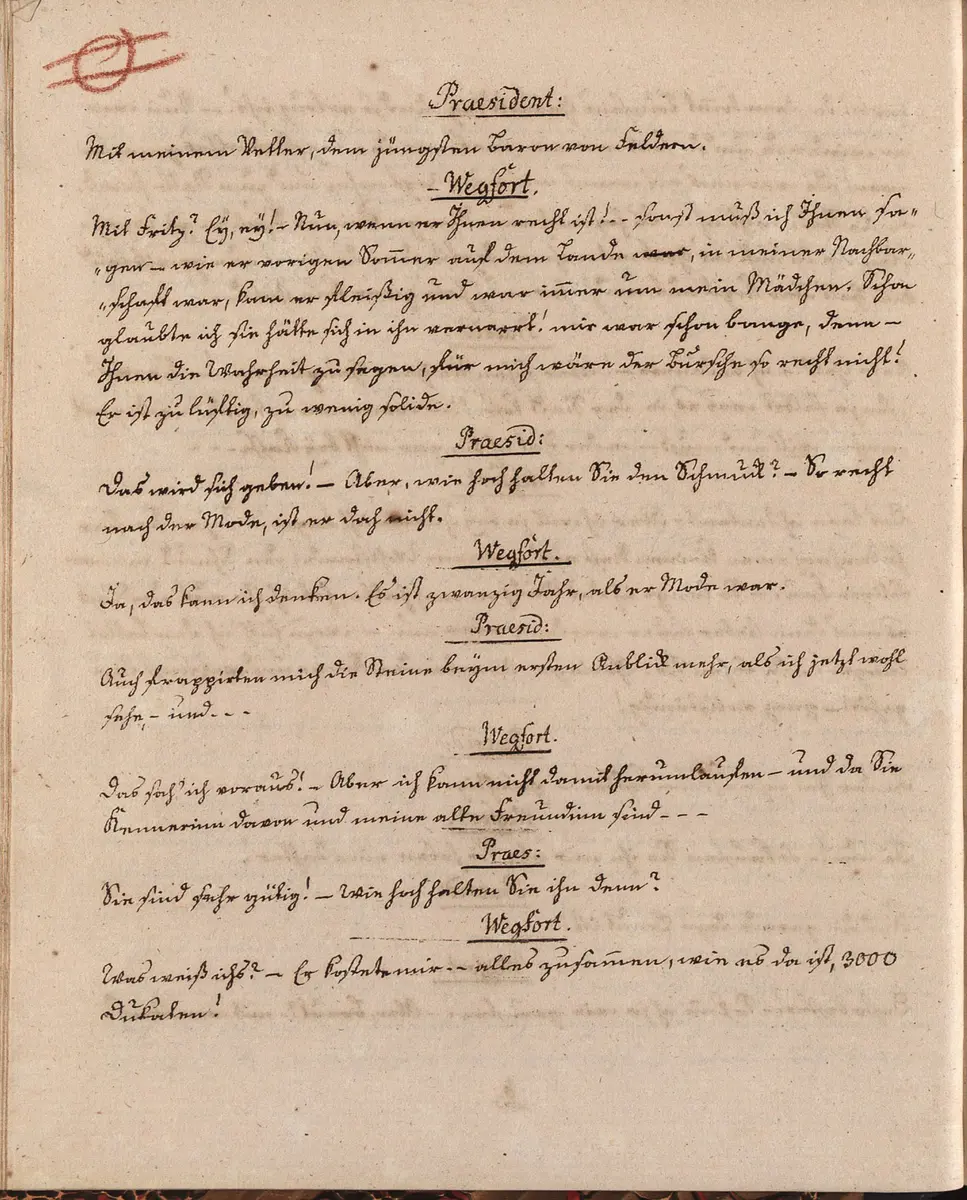 Praesident:
Mit meinem Vetter, dem jüngsten Baron von Feldern.
– Wegfort.
Mit Fritz? Ey, ey! – Nun, wenn er Ihnen recht ist! - - sonst muß ich Ihnen sa„
„gen – wie er vorigen Sommer auf dem Lande war, in meiner Nachbar„
„schaft war, kam er fleißig und war immer um mein Mädchen. Schon
glaubte ich sie hätte sich in ihn vernarrt! mir war schon bange, denn –
Ihnen die Wahrheit zu sagen, für mich wäre der Bursche so recht nicht!
Er ist zu lüftig, zu wenig solide.
Praesid:
Das wird sich geben! – Aber, wie hoch halten Sie den Schmuck? – So recht
nach der Mode, ist er doch nicht.
Wegfort.
Ja, das kann ich denken. Es ist zwanzig Jahr, als er Mode war.
Praesid:
Auch frappirten mich die Steine beym ersten Anblick mehr, als ich jetzt wohl
sehe, – und - - -
Wegfort.
Das sah' ich voraus! – Aber ich kann nicht damit herumlaufen – und da Sie
Kennerinn davon und meine alte Freundinn sind - - -
Praes:
Sie sind sehr gütig! – Wie hoch halten Sie ihn denn?
Wegfort.
Was weiß ichs? – Er kostete mir - - alles zusammen, wie es da ist, 3000
Dukaten!